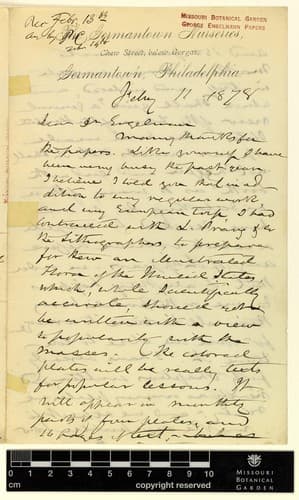 Rec Feby. 13th
MISSOURI BOTANICAL GARDEN
GEORGE ENGELMANN PAPERS
Germantown Nurseries,
Chew Street, below Gorgas,
Germantown, Philadelphia
Feby 11 1878
Dear Dr Engelmann
Many thanks for
the papers. Like yourself I have
been very busy the past year
I believe I told you that in ad
dition to my regular work
and my European trip, I had
contracted with L. Prang & Co
the Lithographers, to prepare
for them an Illustrated
Flora of the United States
which, while scientifically
accurate, should yet
be written with a view
to popularity with the
masses. The colored
plates will be really texts
for popular lessons. It
will appear in monthly
parts of four plates, and
16 pages of text,
cm 0 1 2 3 4 5 6 7 8 9 10
MISSOURI
BOTANICAL
GARDEN